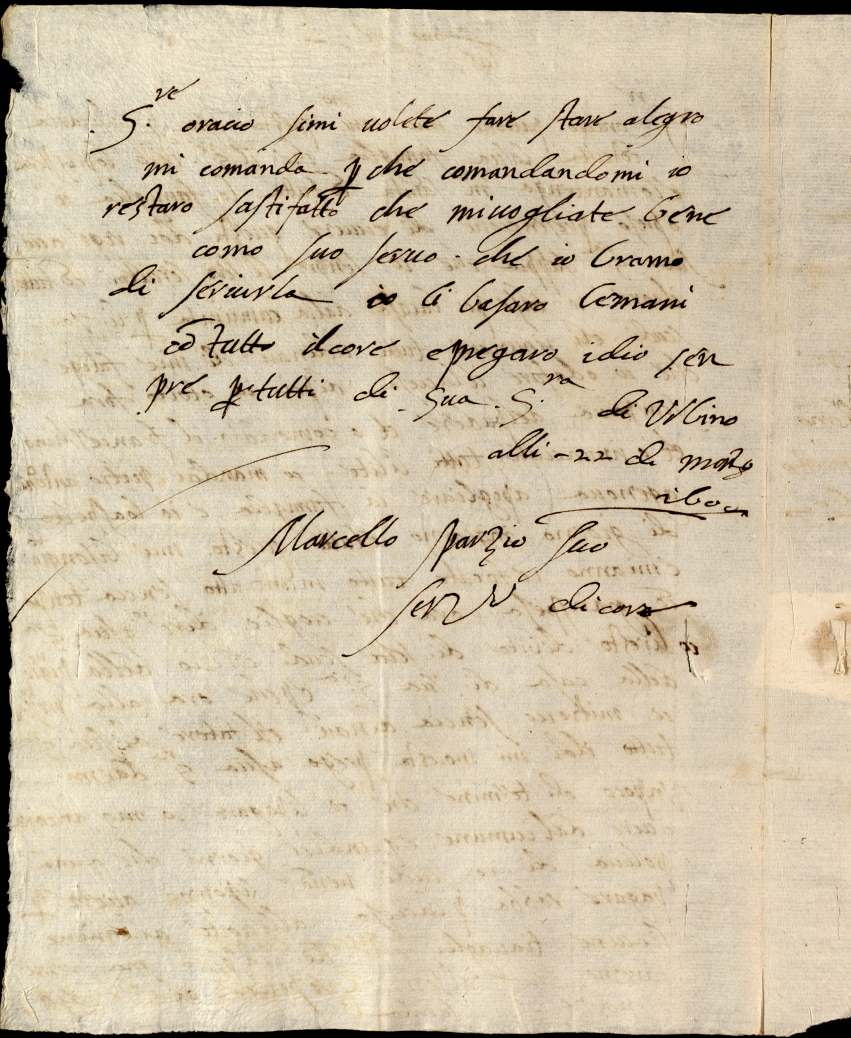 S.re oracio simi volete fare stare alegro
mi comanda p che comandandomi io
restaro sastifatto che mi vogliate bene
como suo servo . che io bramo
di serivrla io li basaro lemani
cō tutto il core e pregaro idio sen
pre p tutti di . Sua . S.ra di Urbino
alli - 22 di marzo
Marcello sparzio suo
dicore